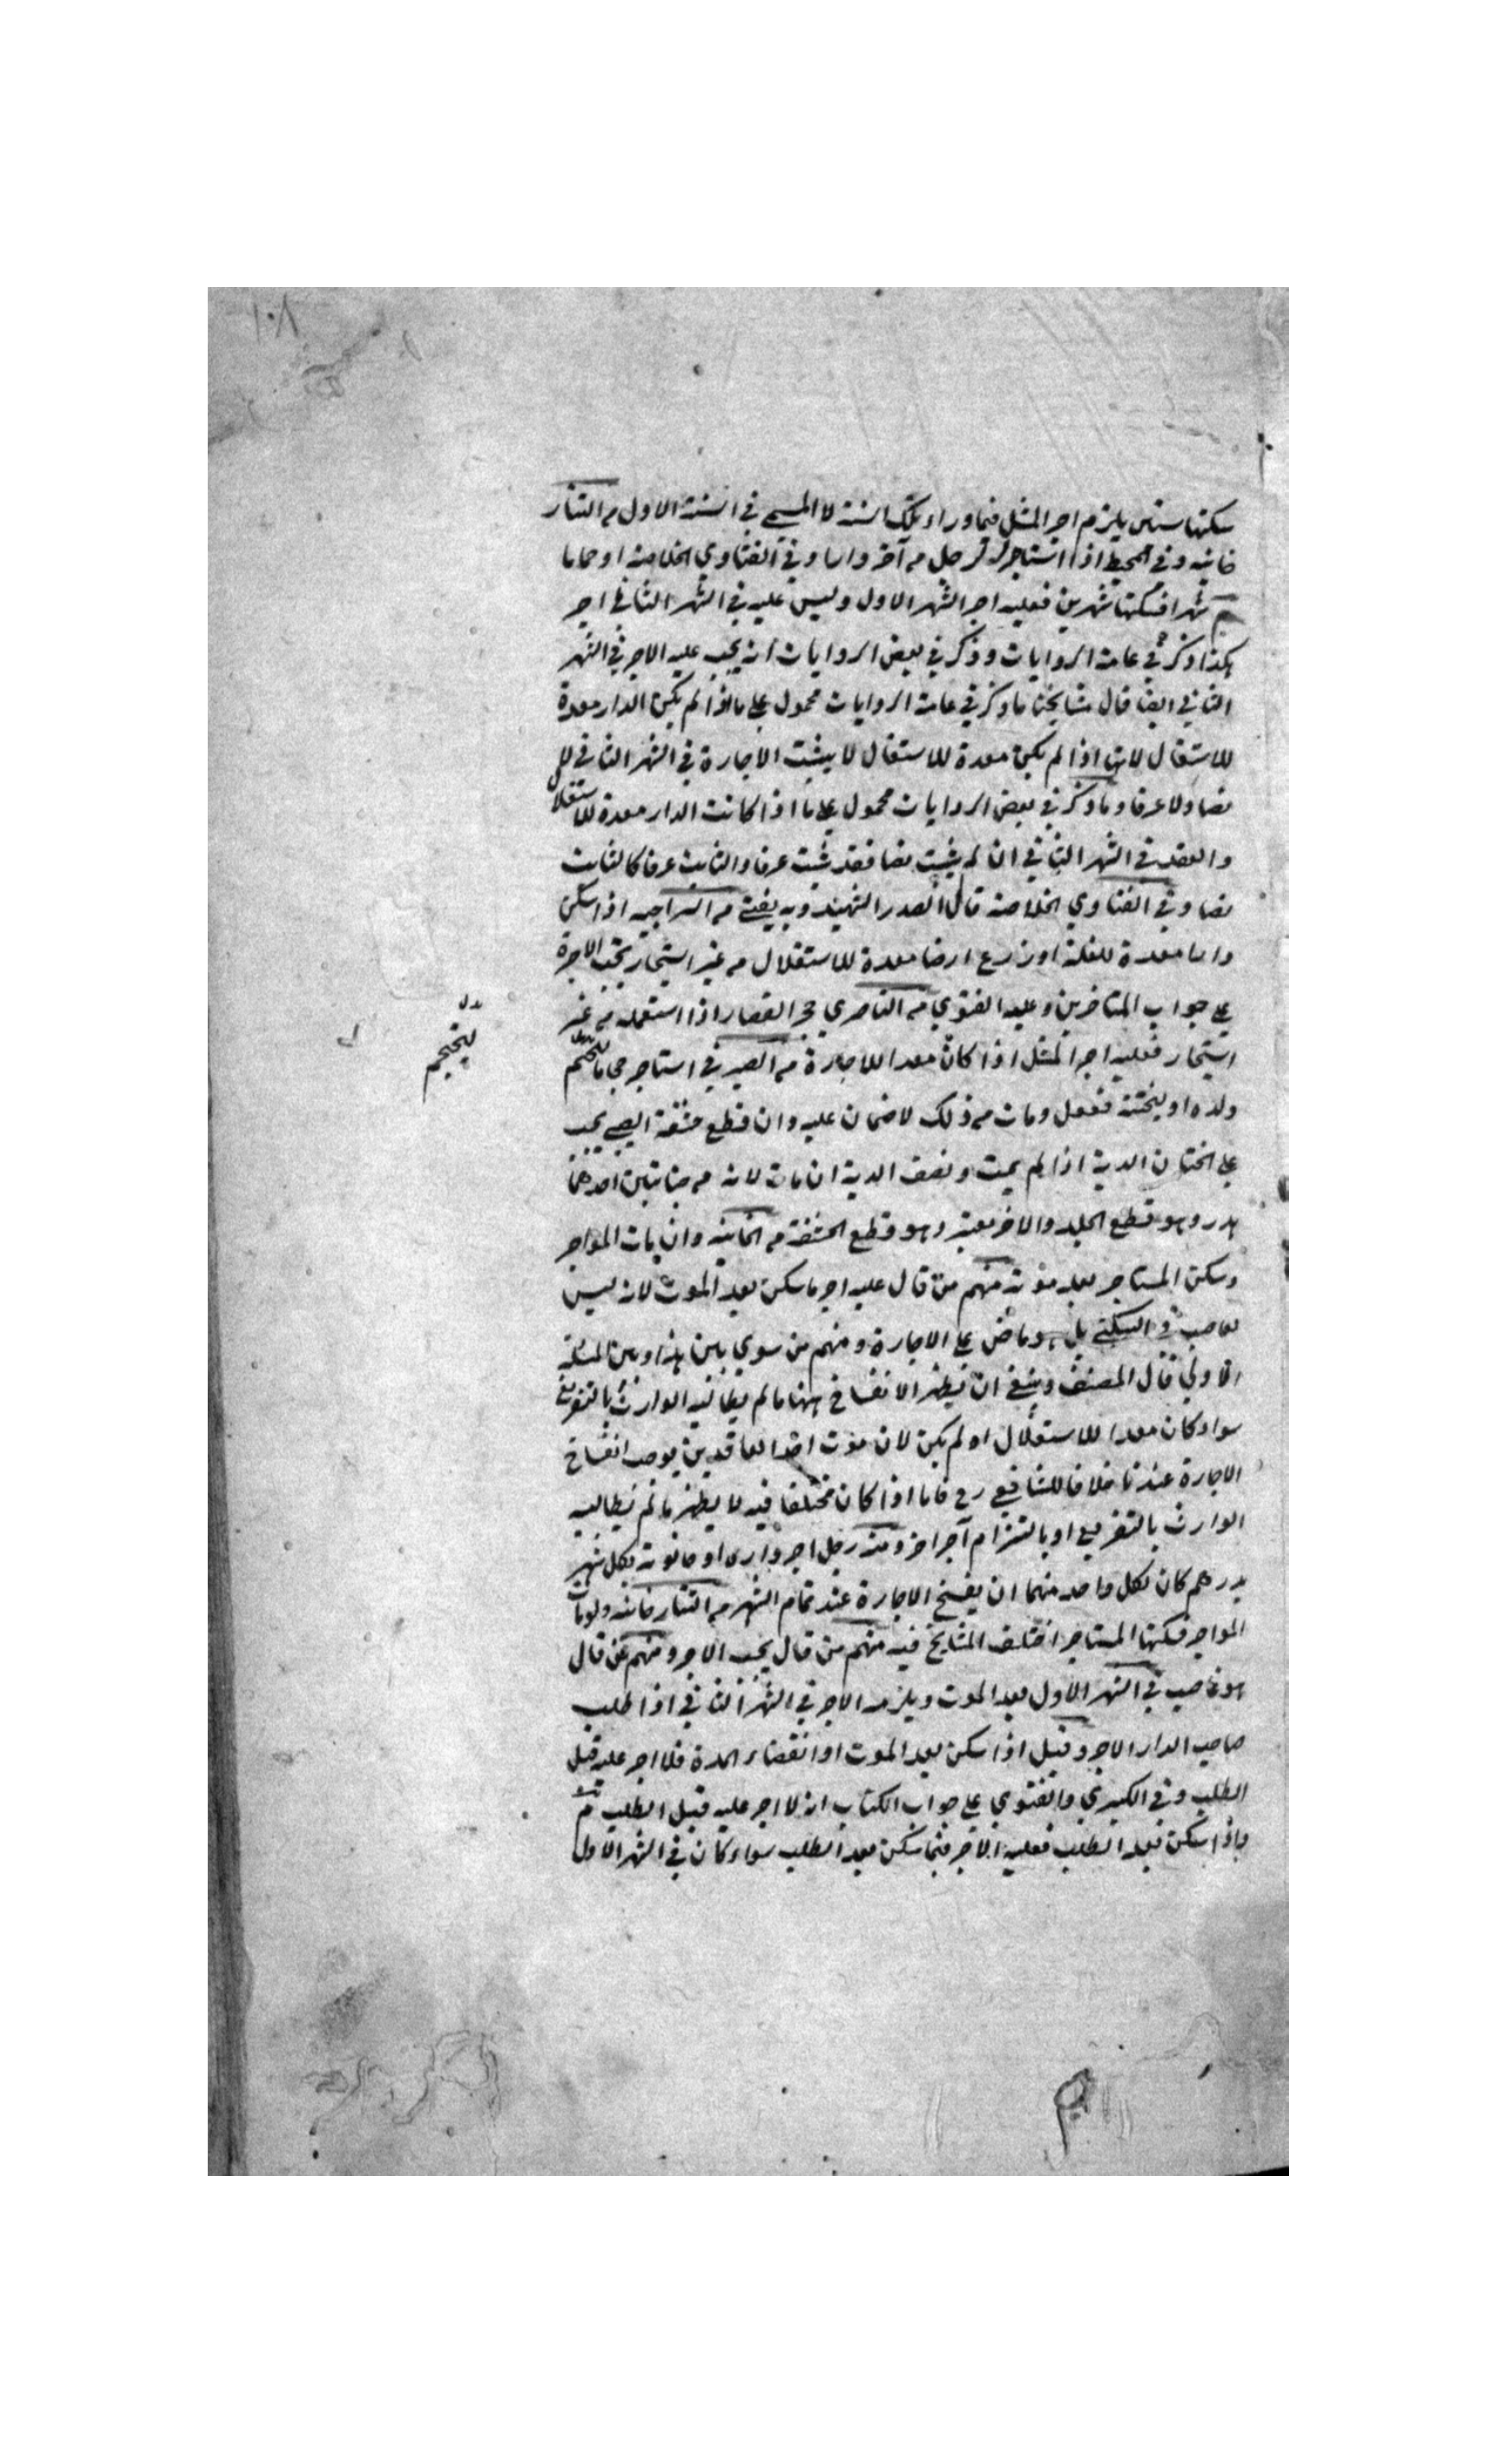 ١٠٨
سكنها سنتين يلزم اجر المثل فيما وراء تلك السنة لا المسمى في السنة الاول من التتار
خانيه وفي المحيط اذا استاجر رجل من آخر دارا وفي الفتاوي الخلاصة او حماما
شهرا فسكنها شهرين فعليه اجر الشهر الاول وليس عليه في الشهر الثاني اجر
هكذا ذكر في عامة الروايات وذكر في بعض الروايات انه يجب عليه الاجر في الشهر
الثاني ايضا قال مشايخنا ما ذكر في عامة الروايات محمول على ما اذا لم يكن الدار معدة
للاستغلال لانها اذا لم يكن معدة للاستغلال لا يثبت الاجارة في الشهر الثاني لا
نصا ولا عرفا وما ذكر في بعض الروايات محمول على ما اذا كانت الدار معدة للاستغلال
والعقد في الشهر الثاني ان لم يثبت نصا فقد ثبت عرفا والثابت عرفا كالثابت
نصا وفي الفتاوي الخلاصة قال الصدر الشهيد وبه يفتى من السراجيه اذا سكن
دارا معدة للغلة او زرع ارضا معدة للاستغلال من غير استيجار تجب الاجرة
على جواب المتاخرين وعليه الفتوي من الناصري حجر القصار اذا استعمله من غير
استيجار فعليه اجر المثل اذا كان معدا للاجارة من الصيرفي استاجر حجاما ليحجم
ولده او ليختنه ففعل ومات من ذلك لا ضمان عليه وان قطع حشفة الصبي يجب
على الختان الدية اذا لم يمت ونصف الدية ان مات لانه من جنايتين احدهما
هدر وهو قطع الجلد والاخر معتبر وهو قطع الحشفة من الخانيه وان مات المواجر
وسكن المستاجر بعد موته منهم من قال عليه اجر ما سكن بعد الموت لانه ليس
بغاصب في السكنى بل هو ماض على الاجارة ومنهم من سوي بين هذا وبين المسئلة
الاولي قال المصنف وينبغي ان لا يظهر الانفساخ ههنا ما لم يطالبه الوارث بالتفريغ
سواء كان معدا للاستغلال او لم يكن لان موت احد العاقدين يوجب انفساخ
الاجارة عندنا خلافا للشافعي رح فاما اذا كان مختلفا فيه لا يظهر ما لم يطالبه
الوارث بالتفريغ او بالتزام آجر اخر ومنه رجل اجر داره او حانوته كل شهر
بدرهم كان لكل واحد منهما ان يفسخ الاجارة عند تمام الشهر من التتار خانيه ولو مات
المواجر فسكنها المستاجر اختلف المشايخ فيه منهم من قال يجب الاجر ومنهم من قال
هو غاصب في الشهر الاول بعد الموت ويلزمه الاجر في الشهر الثاني اذا طلب
صاحب الدار الاجر وقيل اذا سكن بعد الموت او انقضاء المدة فلا اجر عليه قبل
الطلب وفي الكبرى والفتوي على جواب الكتاب انه لا اجر عليه قبل الطلب
واذا سكن بعد الطلب فعليه الاجر فيما سكن بعد الطلب سواء كان في الشهر الاول